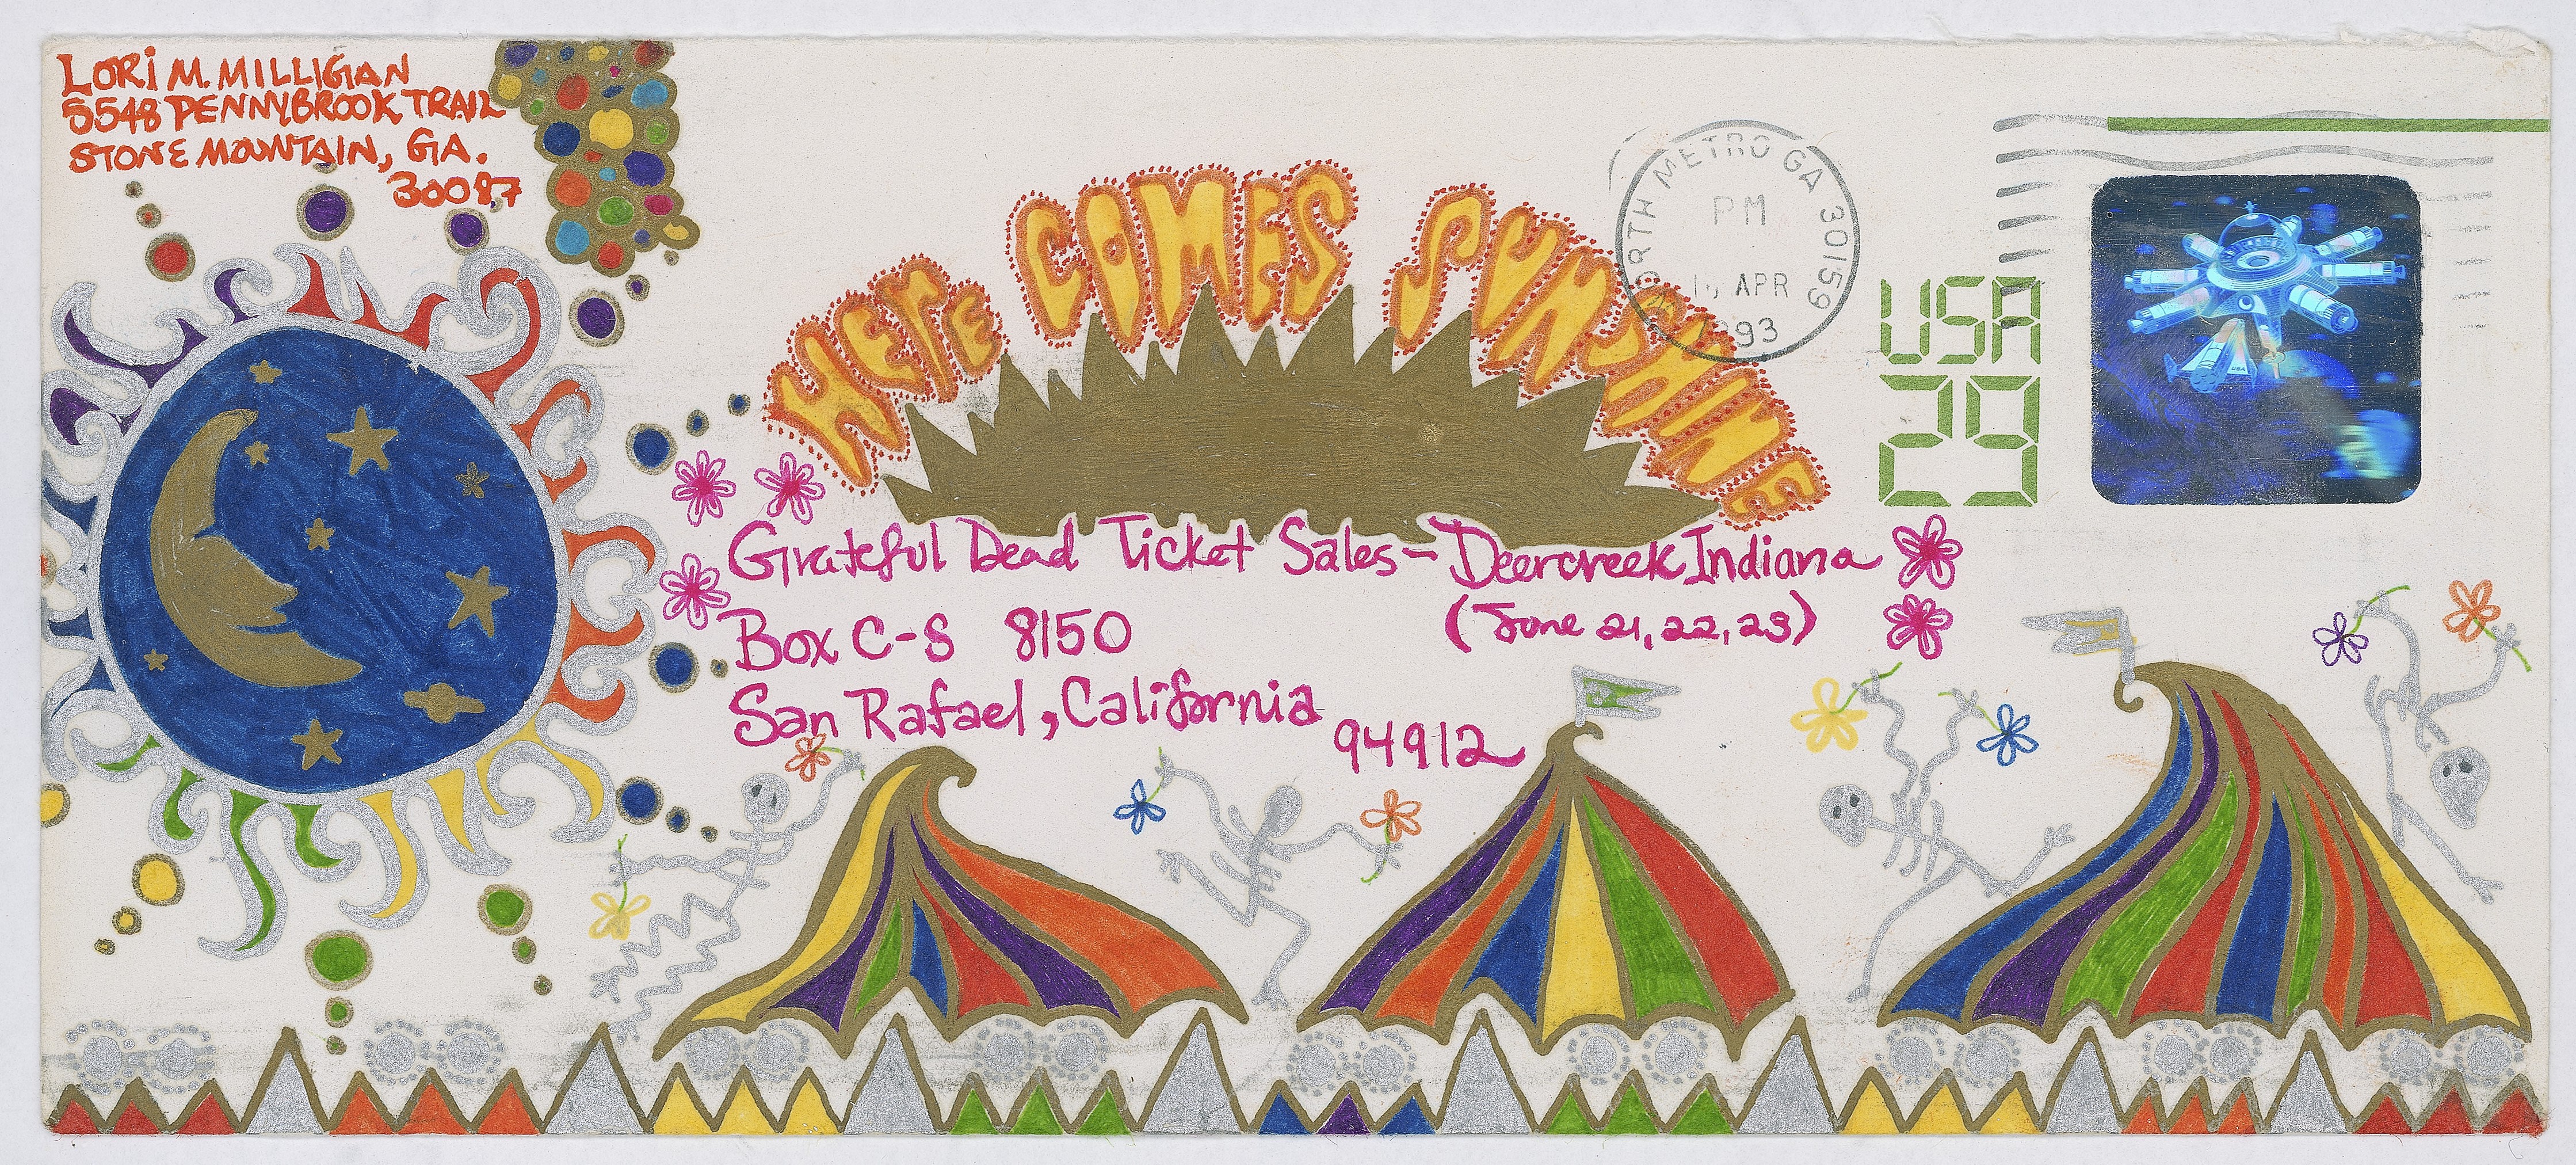 LORI M. MILLIGAN
5548 PENNYBROOK TRAIL
STONE MOUNTAIN, GA.
30087
HERE COMES SUNSHINE
NORTH METRO GA 30159
PM
APR
1993
USA
29
USA
Grateful Dead Ticket Sales - Deercreek Indiana
(June 21, 22, 23)
Box C-S 8150
San Rafael, California
94912